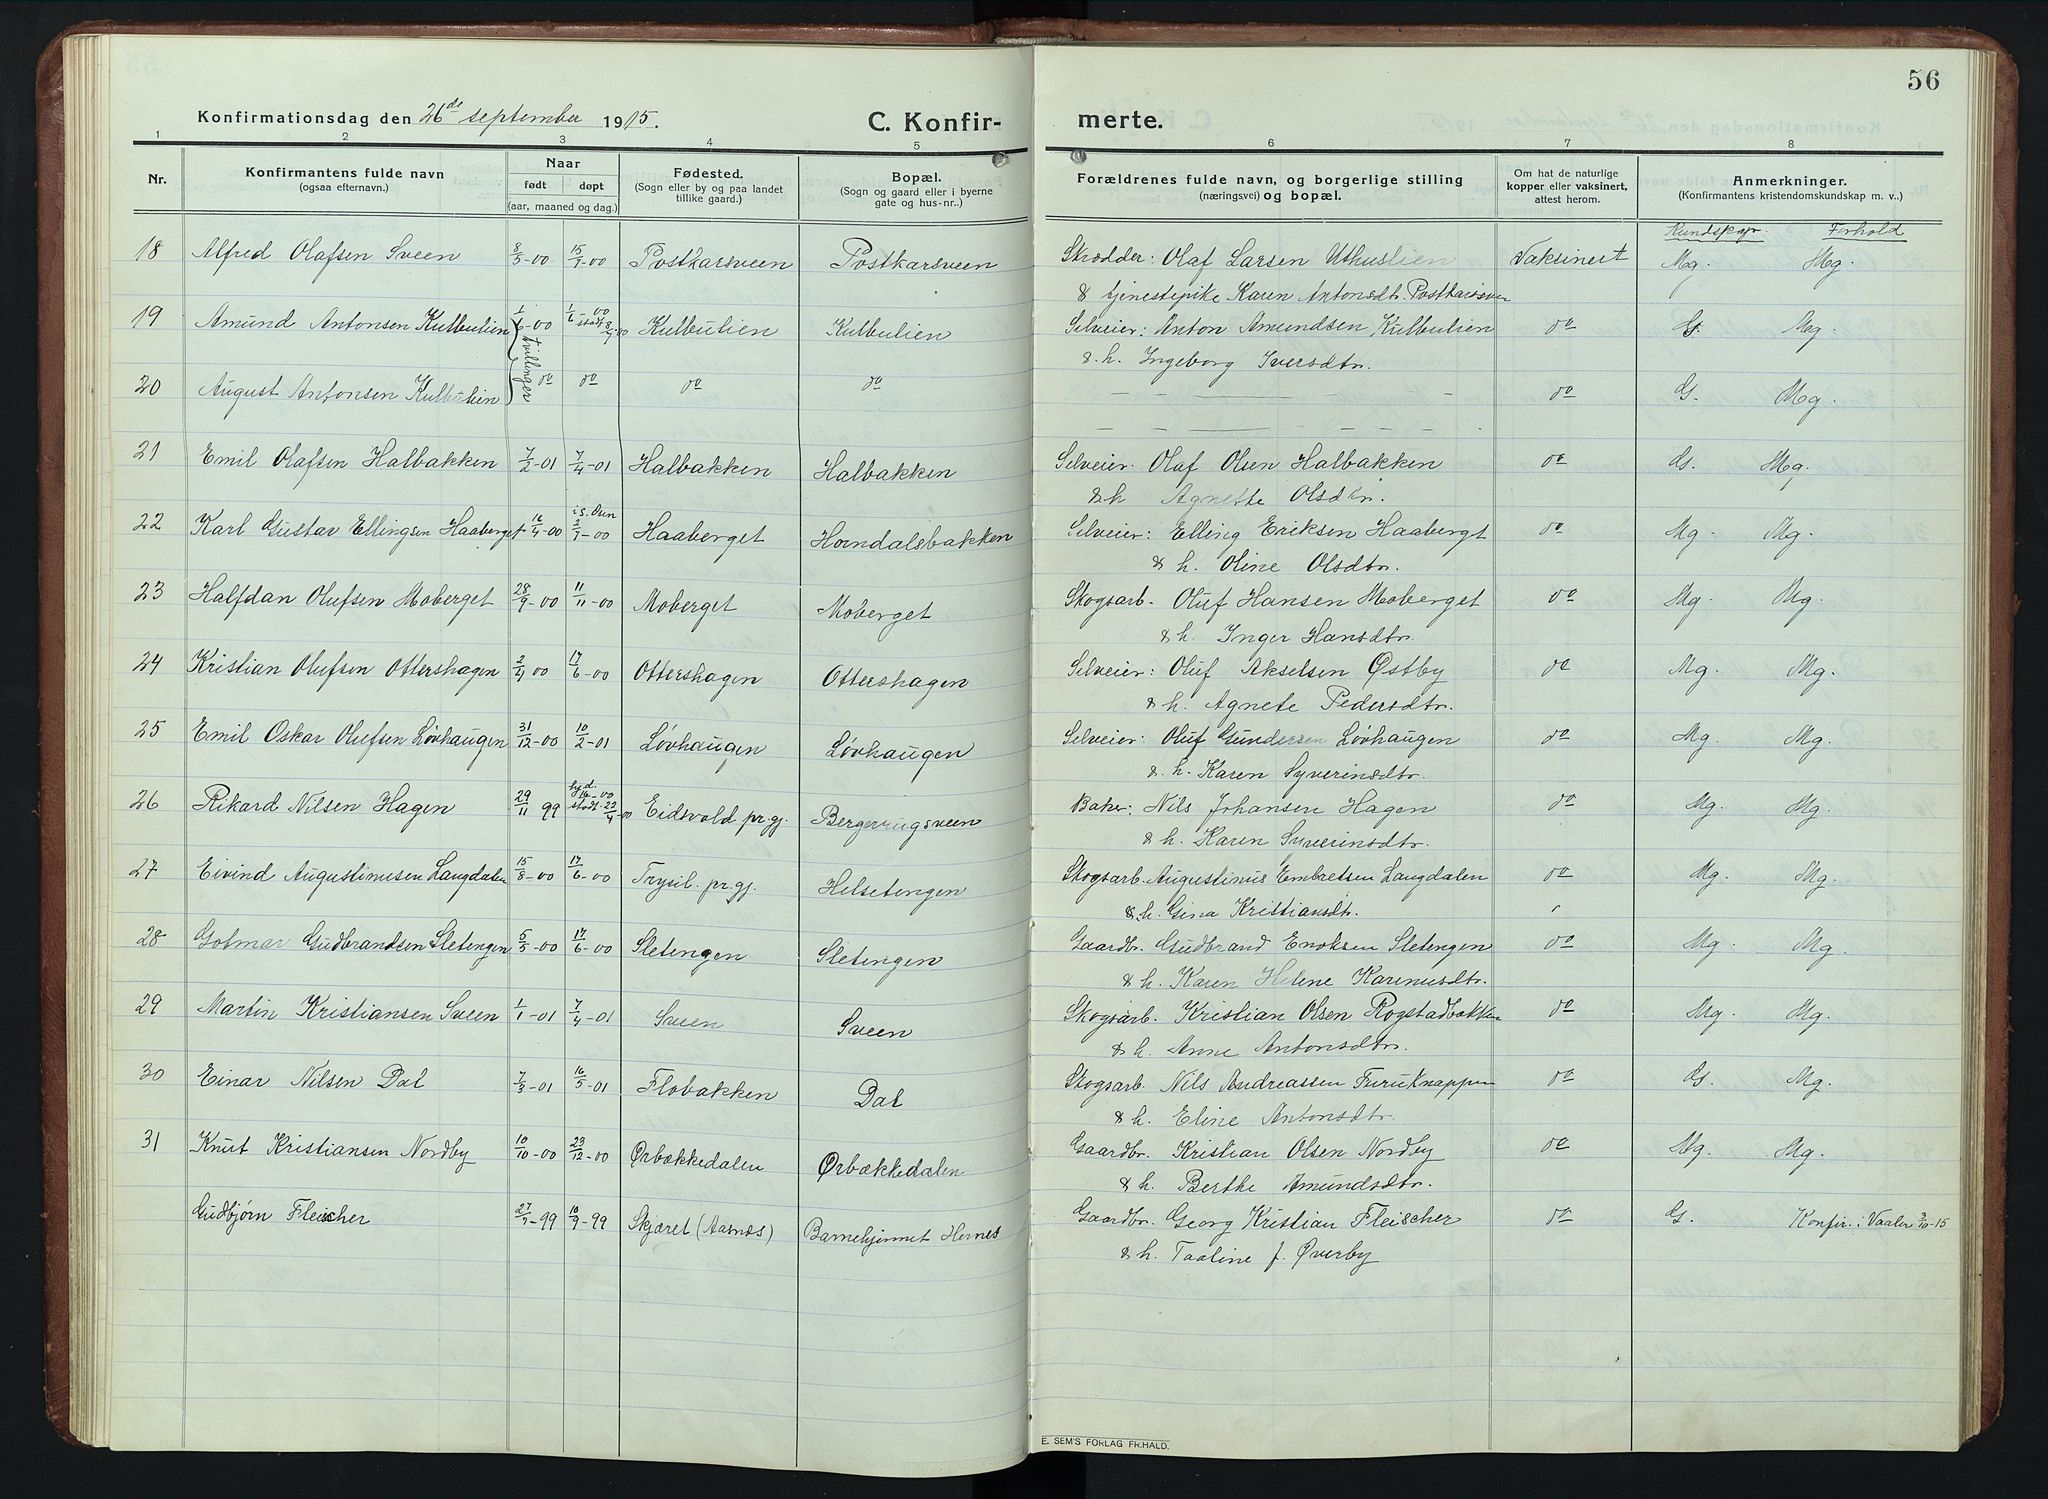 56
Konfirmationsdag den 26de september 1915.
C. Konfirmerte.
1 2 3 4 5 6 7 8
Nr.
Konfirmantens fulde navn
(ogsaa efternavn.)
Naar
født døpt
(aar, maaned og dag.)
Fødested.
(Sogn eller by og paa landet
tillike gaard.)
Bopæl.
(Sogn og gaard eller i byerne
gate og hus-nr..)
Forældrenes fulde navn, og borgerlige stilling
(næringsvei) og bopæl.
Om hat de naturlige
kopper eller vaksinert,
attest herom.
Anmerkninger.
(Konfirmantens kristendomskundskap m. v..)
Kundskap. Forhold
18 Alfred Olafsen Sveen 8/5-00 15/7-00 Postkarsveen Postkarsveen Skrædder: Olaf Larsen Uthuslien Vaksinert Mg. Mg.
& tjenestepike Karen Antonsdt. Postkarsveen
19 Amund Antonsen Kulbulien 1/6-00 1/6-00 stadf. 8/7-00 Kulbulien Kulbulien Selveier: Anton Amundsen Kulbulien do G. Mg.
tvillinger
& h. Ingeborg Iversdtr.
20 August Antonsen Kulbulien do do do do — — — — do G. Mg.
— — — — —
21 Emil Olafsen Halbakken 7/2-01 7/4-01 Halbakken Halbakken Selveier: Olaf Olsen Halbakken do G. Mg.
& h Agnette Olsdtr.
22 Karl Gustav Ellingsen Haaberget 16/4-00 i S. Osen 2/7-00 Haaberget Horndalsbakken Selveier: Elling Eriksen Haabergt do Mg. Mg.
& h. Oline Olsdtr.
23 Halfdan Olufsen Moberget 28/9-00 11/11-00 Moberget Moberget Skogsarb. Oluf Hansen Moberget do Mg. Mg.
& h. Inger Hansdtr.
24 Kristian Olufsen Ottershagen 2/4 00 17/6-00 Ottershagen Ottershagen Selveier: Oluf Akselsen Østby do Mg. Mg.
& h. Agnete Pedersdtr.
25 Emil Oskar Olufsen Løvhaugen 31/12-00 10/2-01 Løvhaugen Løvhaugen Selveier: Oluf Gundersen Løvhaugen do Mg. Mg.
& h. Karen Syverinsdtr.
26 Rikard Nilsen Hagen 29/11 99 stadf. 22/4-00 Eidsvold pr.gj. Bergerrugsveen Baker: Nils Johansen Hagen do Mg. Mg.
& h. Karen Syverinsdtr.
27 Eivind Augustinusen Langdalen 15/8-00 17/6-00 Trysil. pr.gj. Helsetengen Skogsarb. Augustinus Embretsen Langdalen do Mg. Mg.
& h. Gina Kristiansdtr.
28 Gotmar Gudbrandsen Sletengen 5/5-00 17/6-00 Sletengen Sletengen Gaardbr. Gudbrand Enoksen Sletengen do Mg. Mg.
& h. Karen Helene Karenusdtr.
29 Martin Kristiansen Sveen 1/1-01 7/4-01 Sveen Sveen Skogsarb. Kristian Olsen Rogstadbakken do Mg. Mg.
& h. Anne Antonsdtr.
30 Einar Nilsen Dal 7/3-01 16/5-01 Flobakken Dal Skogsarb. Nils Andreassen Furuknappen do G. Mg.
& h. Eline Antonsdtr.
31 Knut Kristiansen Nordby 10/10-00 23/12-00 Ørbækkedalen Ørbækkedalen Gaardbr. Kristian Olsen Nordby do Mg. Mg.
& h. Berthe Amundsdtr.
Gudbjørn Fleischer 27/7-99 10/9-99 Skjæret (Aasnes) Barnehjemmet Hernes Gaardbr. Georg Kristian Fleischer do G. Konfir. i Vaaler 3/10-15
& h. Taaline f. Øverby
E. SEM'S FORLAG FR.HALD.